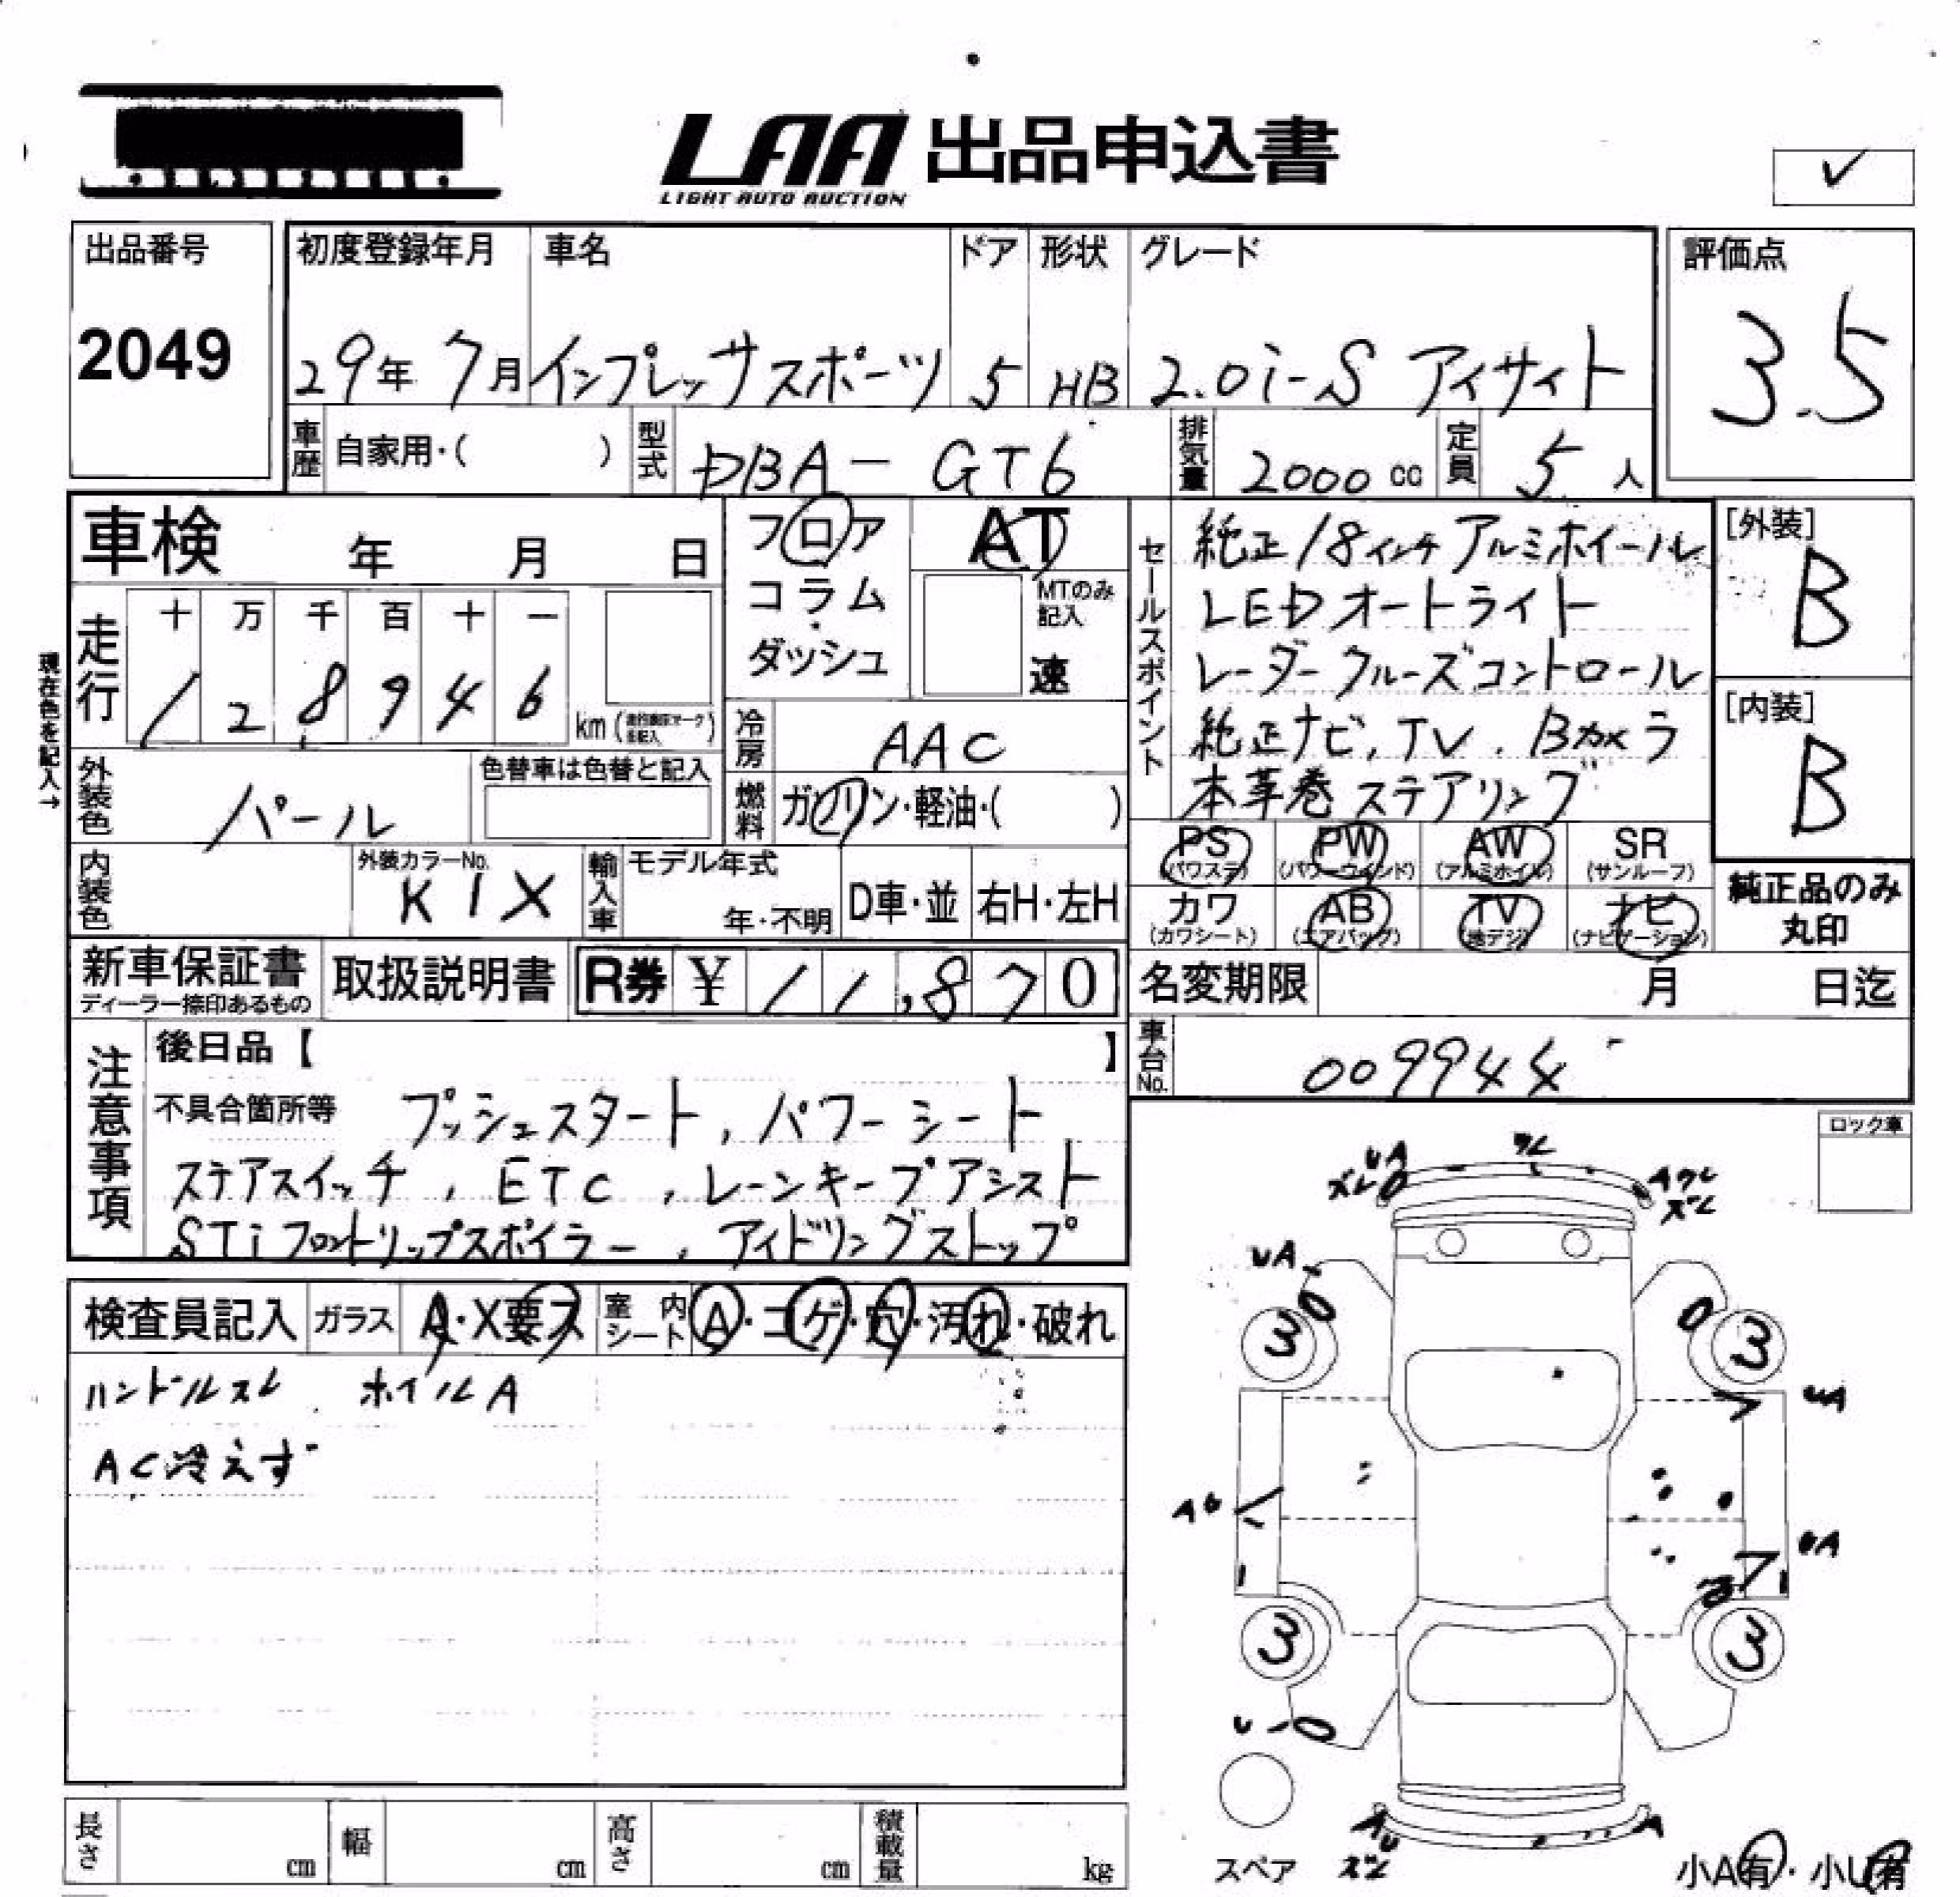 LAA 出品申込書
LIGHT AUTO AUCTION
出品番号
2049
初度登録年月
29年 7月
車名
インプレッサスポーツ
ドア
5
形状
HB
グレード
2.0i-S アイサイト
評価点
3.5
車歴 自家用・( )
型式 DBA-GT6
排気量 2000 cc
定員 5 人
車検 年 月 日
走行 十 万 千 百 十 一
1 2 8 9 4 6 km
現在色を記入→
フロア
コラム
ダッシュ
AT
MTのみ
記入
速
冷房 AAC
燃料 ガソリン・軽油・( )
セールスポイント
純正18インチアルミホイール
LEDオートライト
レーダークルーズコントロール
純正ナビ, TV, Bカメラ
本革巻ステアリング
[外装]
B
[内装]
B
外装色 パール
色替車は色替と記入
内装色
外装カラーNo.
K1X
輸入車
モデル年式
年・不明
D車・並
右H・左H
PS
(パワステ)
PW
(パワーウインド)
AW
(アルミホイル)
SR
(サンルーフ)
カワ
(カワシート)
AB
(エアバッグ)
TV
(地デジ)
ナビ
(ナビゲーション)
純正品のみ
丸印
新車保証書
ディーラー捺印あるもの
取扱説明書
R券 ¥ 11,870
名変期限 月 日迄
車台No. 009944
注意事項
後日品【 】
不具合箇所等 プッシュスタート, パワーシート
ステアスイッチ, ETC, レーンキープアシスト
STiフロントリップスポイラー, アイドリングストップ
ロック車
検査員記入
ガラス A・X要ス
室内シート A・コゲ・穴・汚れ・破れ
ハンドルスレ ホイルA
AC冷えず
UA
ズレ
ワレ
Aワレ
ズレ
UA
3
3
UA
UA
3
3
U
AU
ズレ
A
スペア
小A有・小U有
長さ cm
幅 cm
高さ cm
積載量 kg